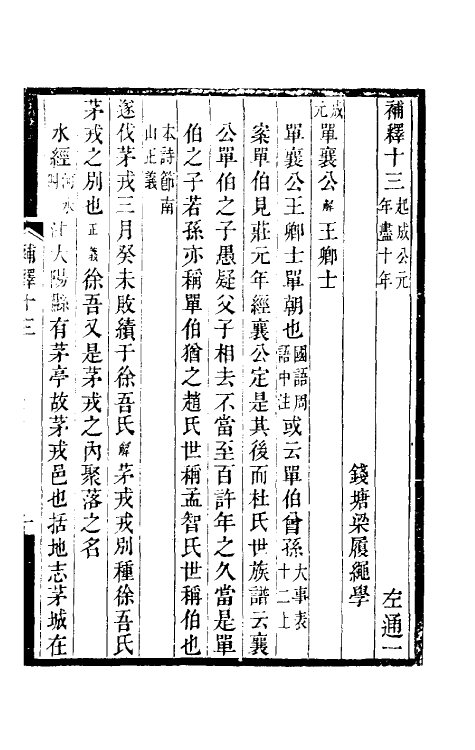 補釋十三起成公元年盡十年 左通一
錢塘梁履繩學
成元單襄公解王卿士
單襄公王卿士單朝也國語周語中注或云單伯曾孫大事表十二上
案單伯見莊元年經襄公定是其後而杜氏世族譜云襄
公單伯之子愚疑父子相去不當至百許年之久當是單
伯之子若孫亦稱單伯猶之趙氏世稱孟智氏世稱伯也
本詩節南山正義
遂伐茅戎三月癸未敗績于徐吾氏解茅戎戎別種徐吾氏
茅戎之別也正義徐吾又是茅戎之內聚落之名
水經河水注大陽縣有茅亭故茅戎邑也括地志茅城在
補釋十三
一